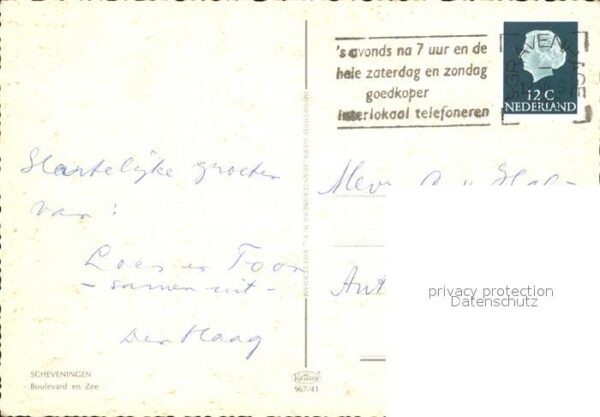 's avonds na 7 uur en de
hele zaterdag en zondag
goedkoper
interlokaal telefoneren
12 C
NEDERLAND
Hartelijke groeten
van:
Loes en Toon
- samen uit -
Den Haag
Mevr.
Ant
privacy protection
Datenschutz
SCHEVENINGEN
Boulevard en Zee
967/41